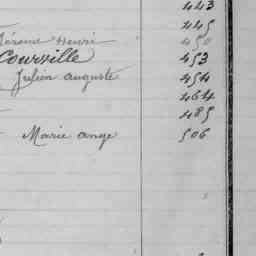 443
445
Jérome Henri 450
Courville 453
Julien auguste 454
464
485
Marie ange 506